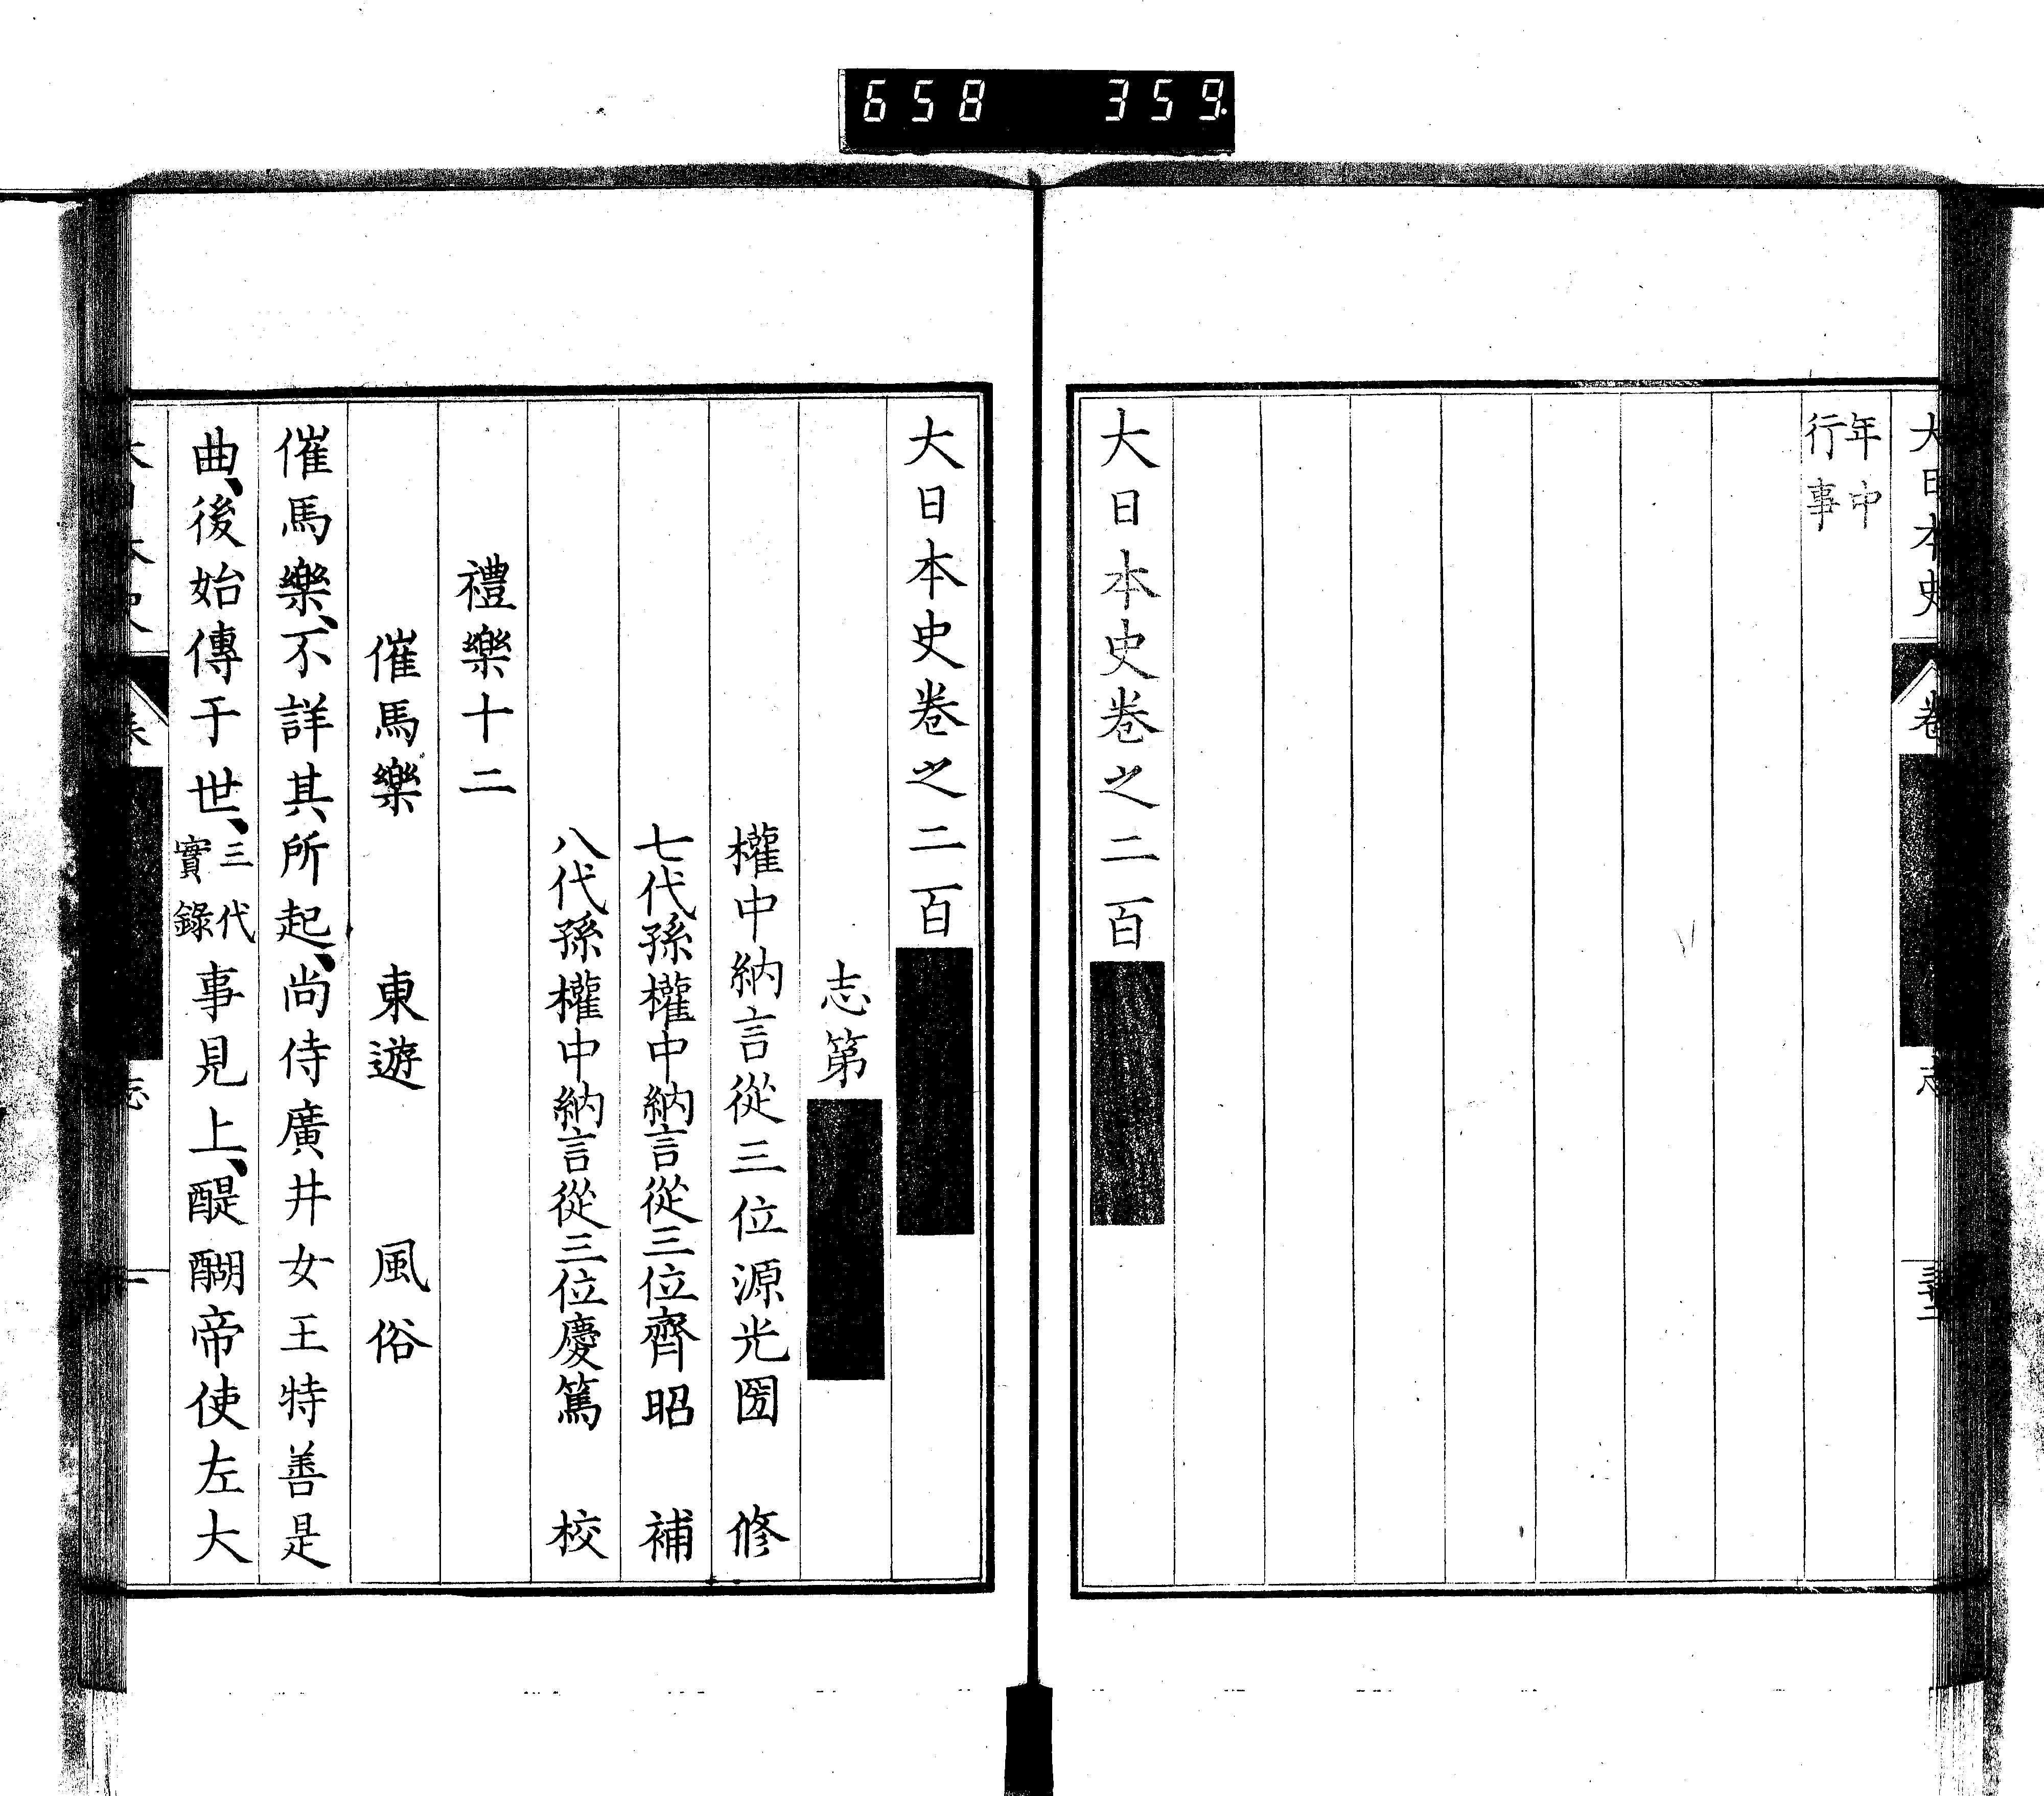 658 359
年中
行事
大日本史卷之二百
大日本史卷之二百
志第
權中納言從三位源光圀 修
七代孫權中納言從三位齊昭 補
八代孫權中納言從三位慶篤 校
禮樂十二
催馬樂 東遊 風俗
催馬樂、不詳其所起、尚侍廣井女王特善是
曲、後始傳于世、三代實錄事見上、醍醐帝使左大